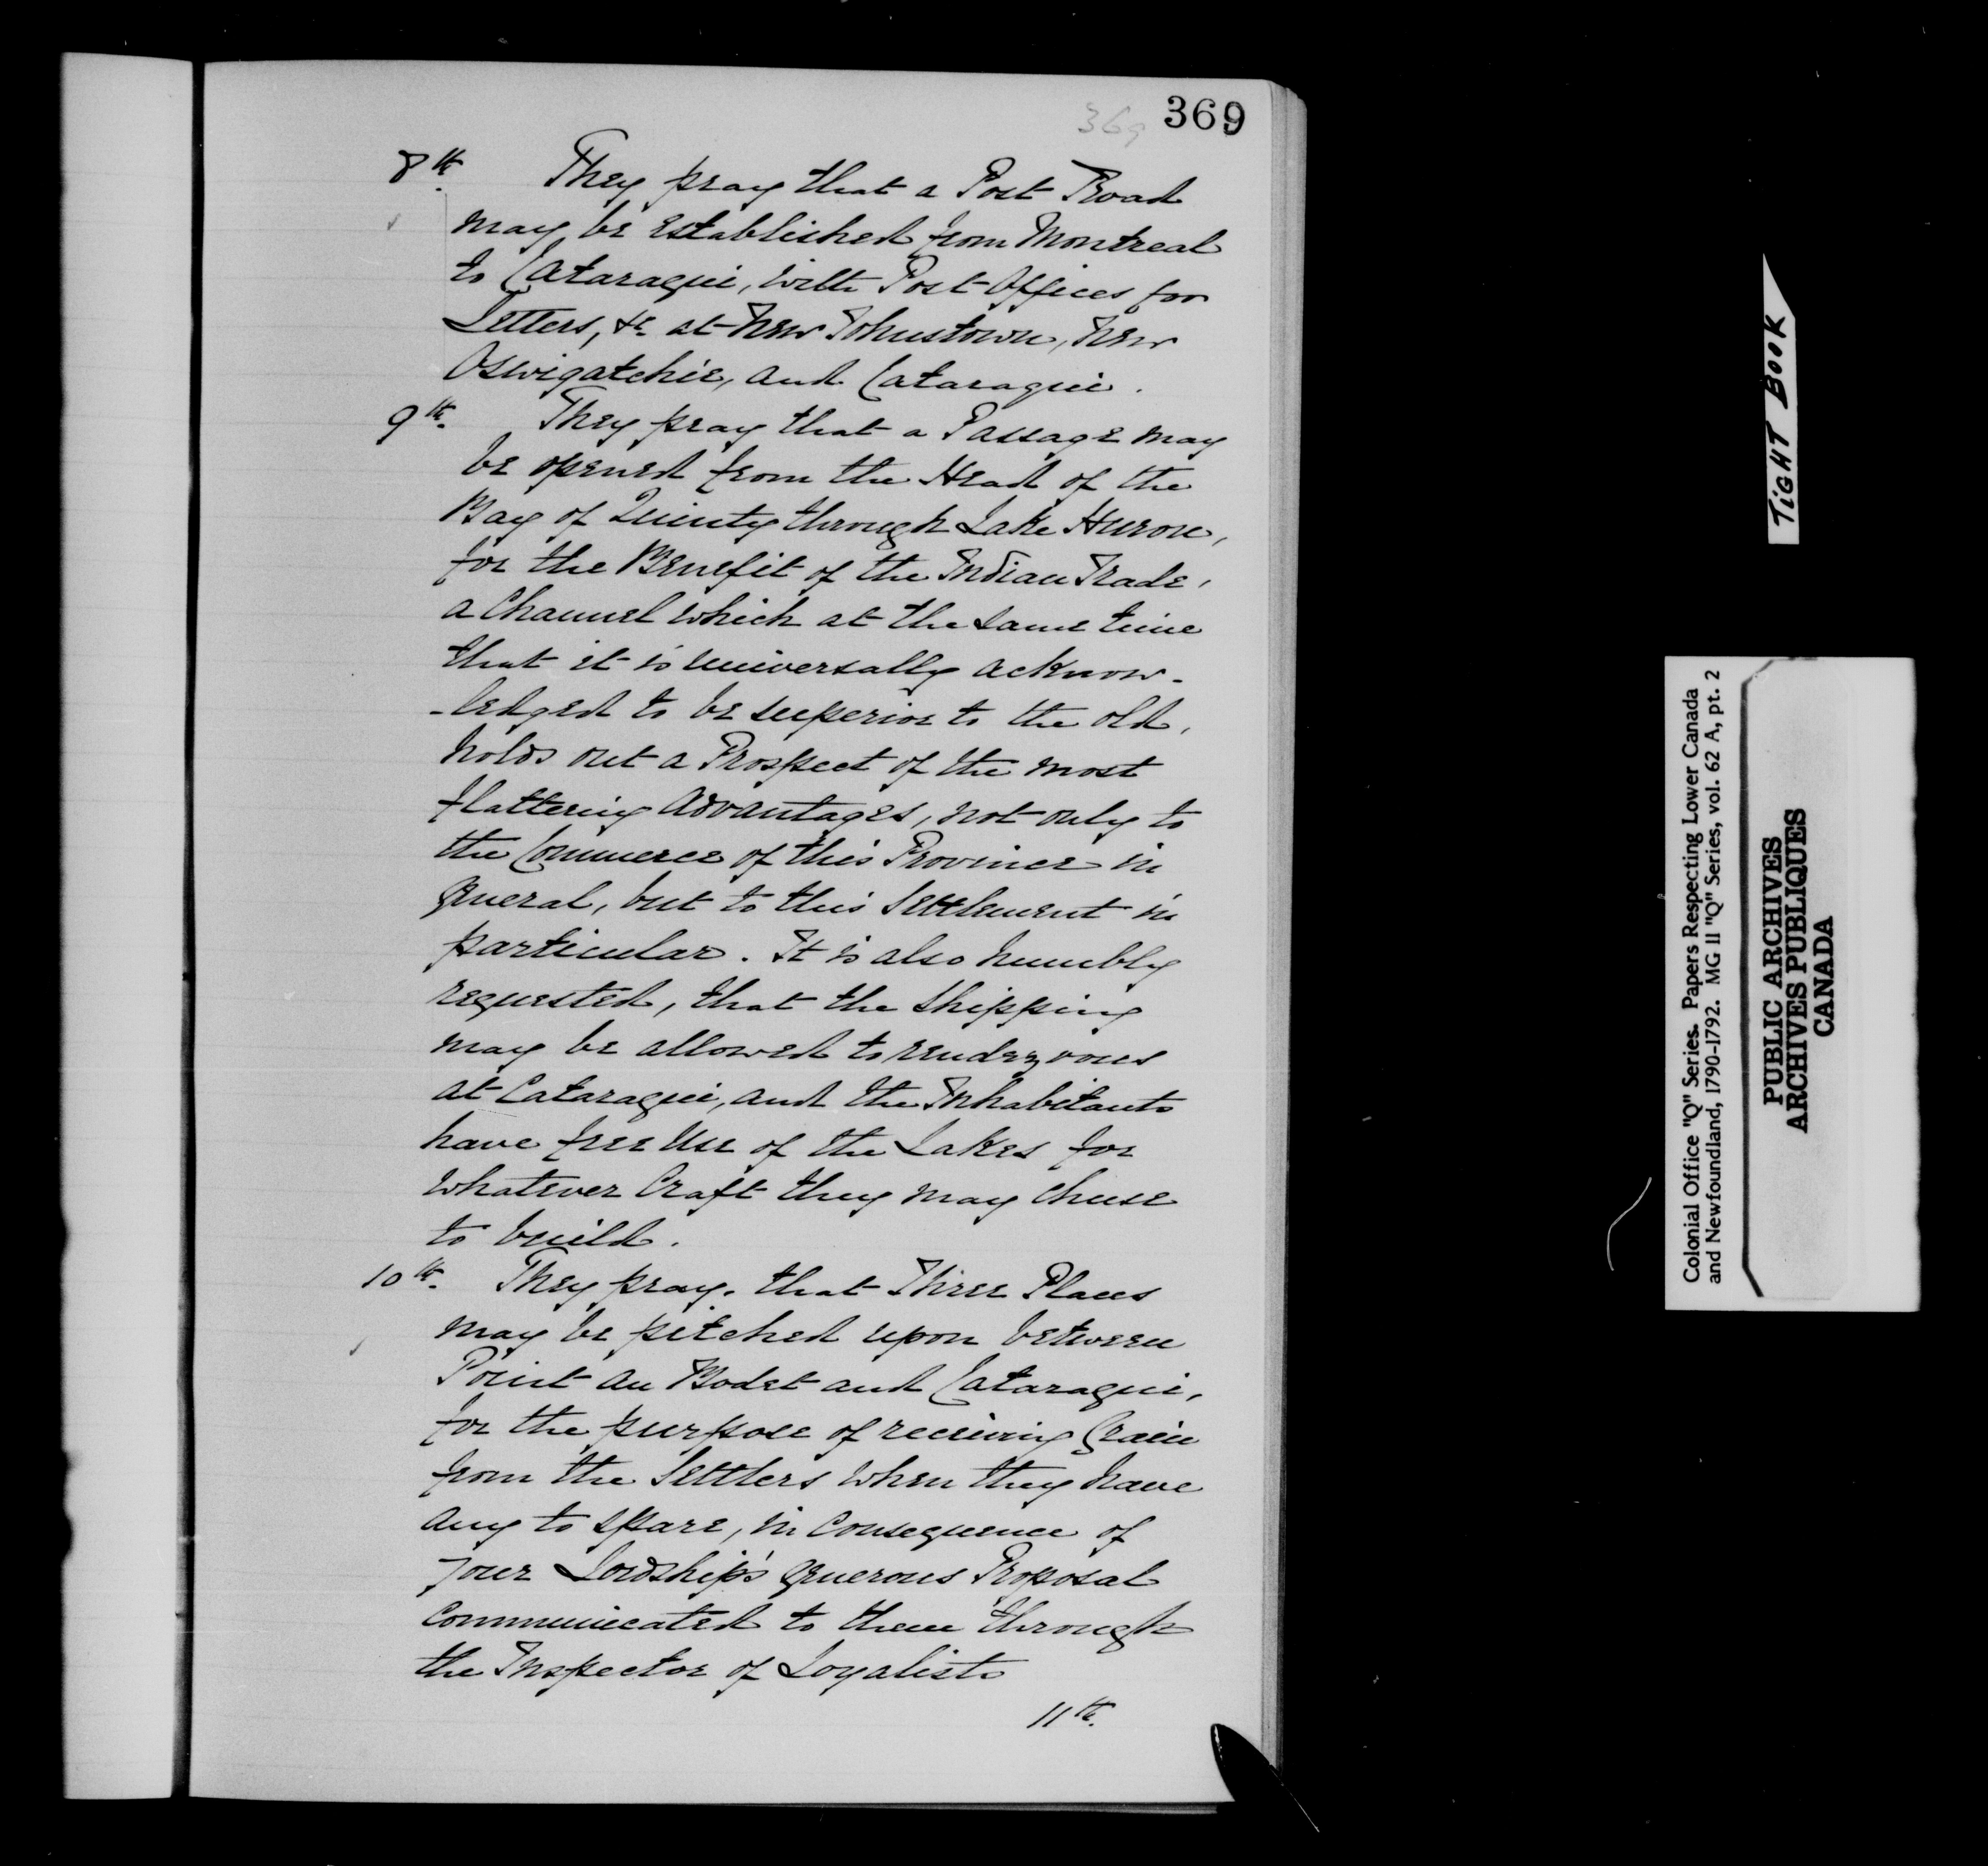 369
369
8th. They pray that a Post Road
may be established from Montreal
to Cataraqui, with Post Offices for
Letters, &c. at New Johnstown, New
Oswigatchie, and Cataraqui.
9th. They pray that a Passage may
be opened from the Head of the
Bay of Quinty through Lake Huron,
for the Benefit of the Indian Trade,
a Channel which at the same time
that it is universally acknow-
-ledged to be superior to the old,
holds out a Prospect of the most
flattering Advantages, not only to
the Commerce of this Province in
General, but to this Settlement in
particular. It is also humbly
requested, that the Shipping
may be allowed to rendezvous
at Cataraqui, and the Inhabitants
have free Use of the Lakes for
whatever Craft they may chuse
to build.
10th. They pray. that Three Places
may be pitched upon between
Point au Bodet and Cataraqui,
for the purpose of receiving Grain
from the Settlers when they have
any to spare, in Consequence of
your Lordship's generous Proposal
communicated to them through
the Inspector of Loyalists
11th.
TIGHT BOOK
Colonial Office "Q" Series. Papers Respecting Lower Canada
and Newfoundland, 1790-1792. MG 11 "Q" Series, vol. 62 A, pt. 2
PUBLIC ARCHIVES
ARCHIVES PUBLIQUES
CANADA